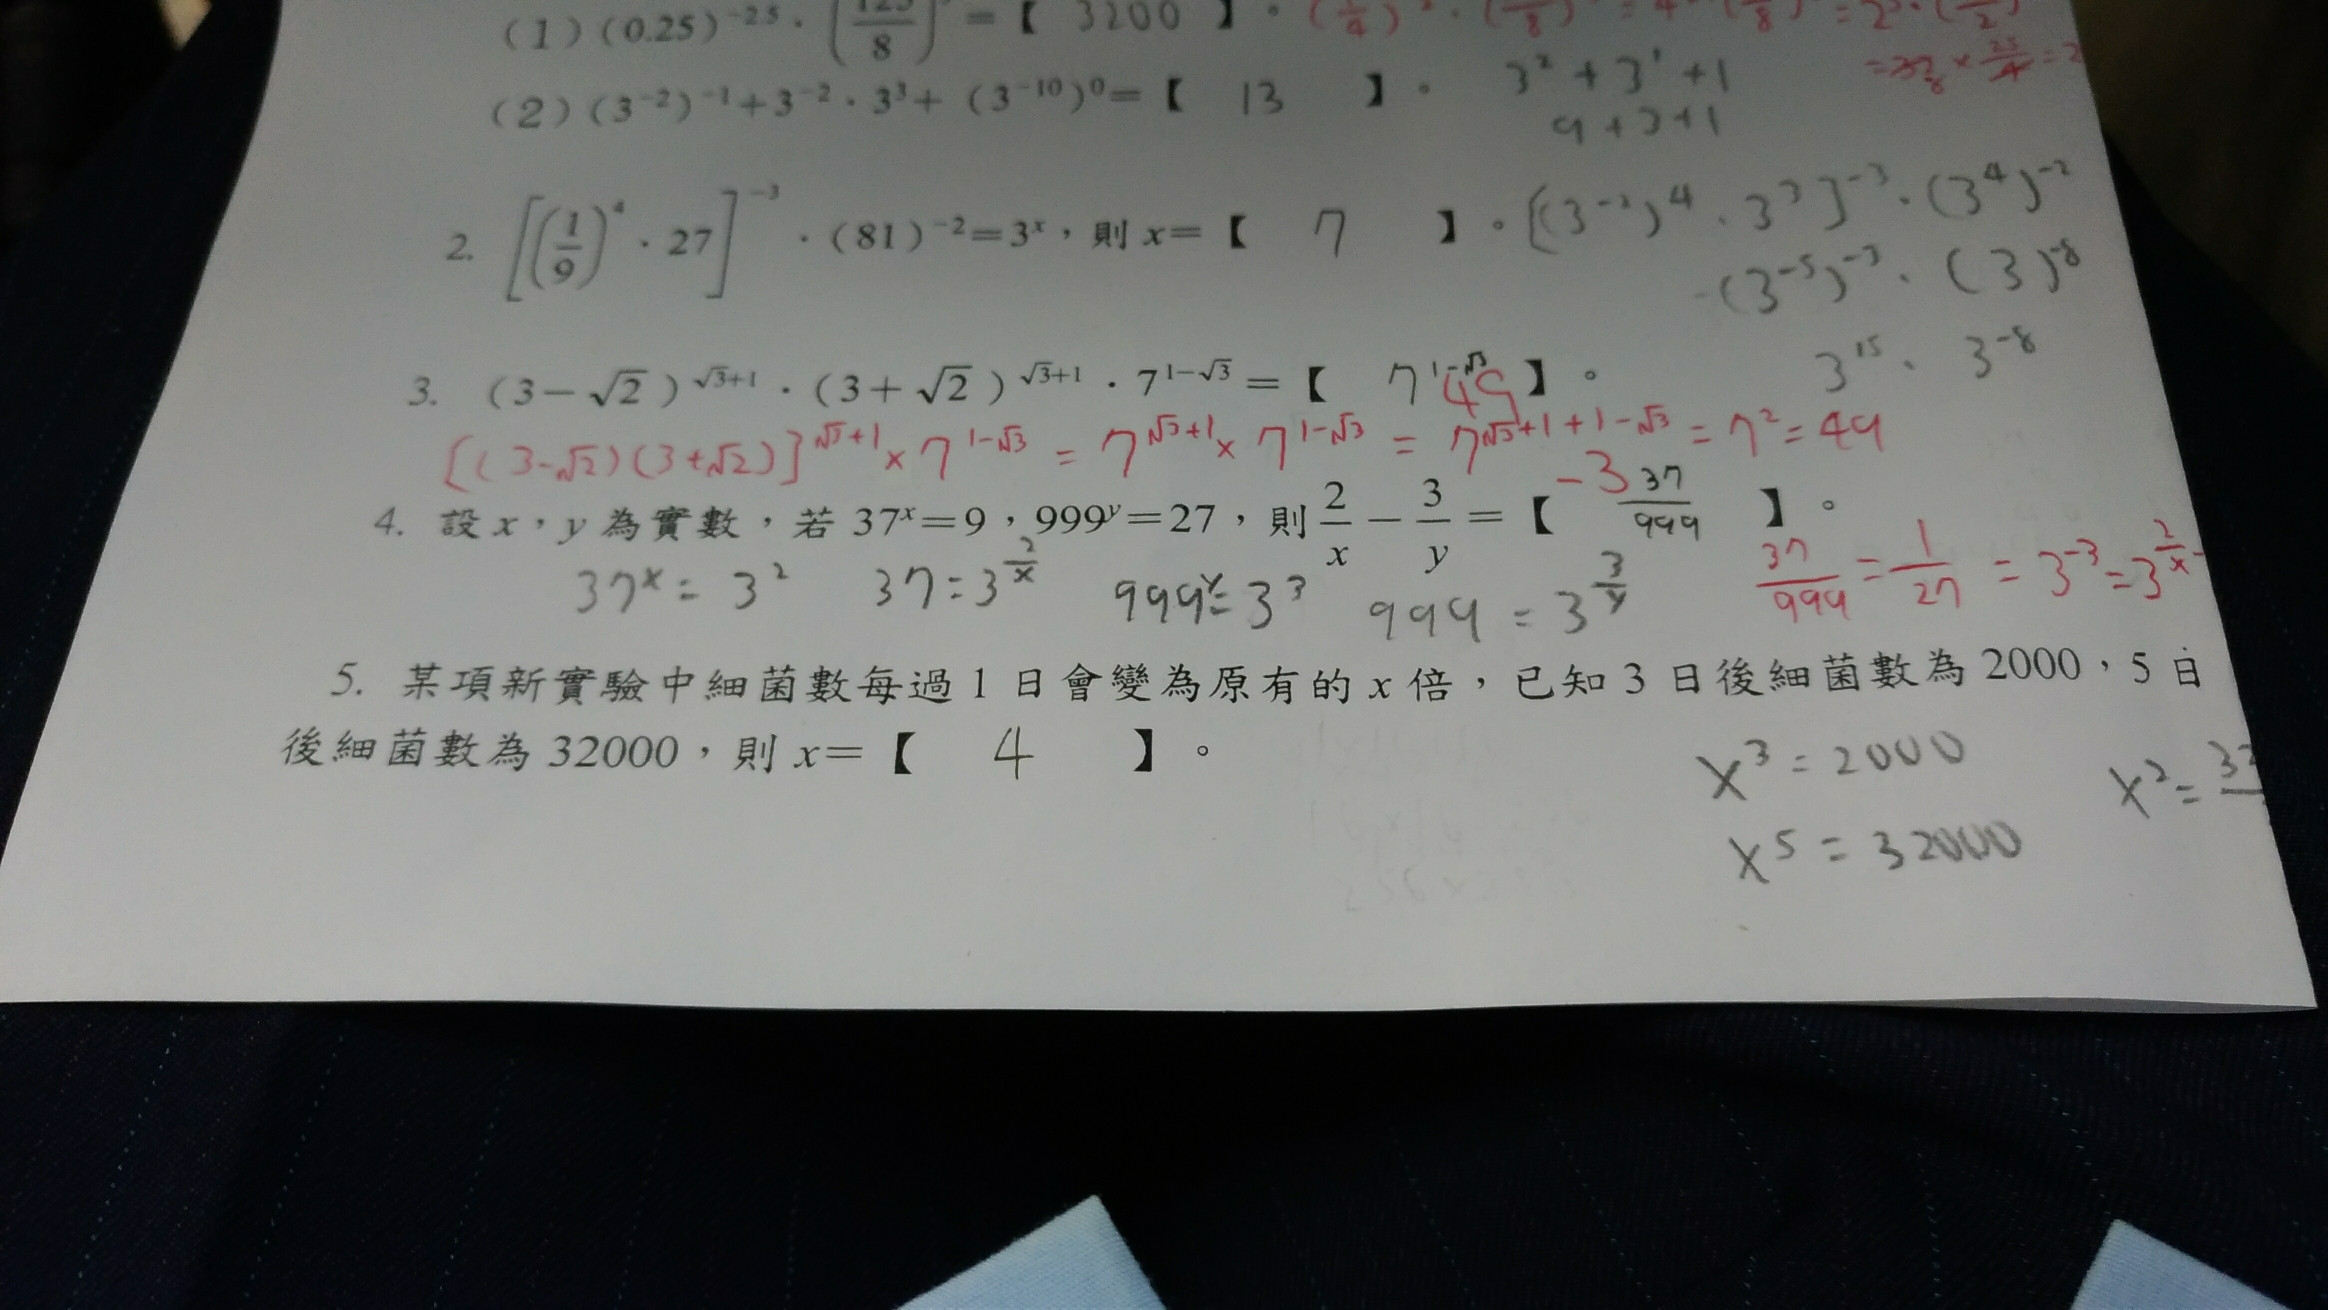 (1)(0.25)^{-2.5}·(125/8)=【 3200 】。
(2)(3^{-2})^{-1}+3^{-2}·3^3+(3^{-10})^0=【 13 】。 3^2+3^1+1
9+3+1
2. [(1/9)^4·27]^{-3}·(81)^{-2}=3^x,則x=【 7 】。 [(3^{-2})^4·3^3]^{-3}·(3^4)^{-2}
(3^{-5})^{-3}·(3)^{-8}
3^{15}·3^{-8}
3. (3-√2)^{√3+1}·(3+√2)^{√3+1}·7^{1-√3}=【 7^{1-√3} 49 】。
[(3-√2)(3+√2)]^{√3+1}×7^{1-√3}=7^{√3+1}×7^{1-√3}=7^{√3+1+1-√3}=7^2=49
4. 設x,y為實數,若37^x=9,999^y=27,則2/x-3/y=【 -3 37/999 】。
37^x=3^2 37=3^{2/x} 999^y=3^3 999=3^{3/y} 37/999=1/27=3^{-3}=3^{2/x-
5. 某項新實驗中細菌數每過1日會變為原有的x倍,已知3日後細菌數為2000,5日
後細菌數為32000,則x=【 4 】。
x^3=2000 x^2=
x^5=32000